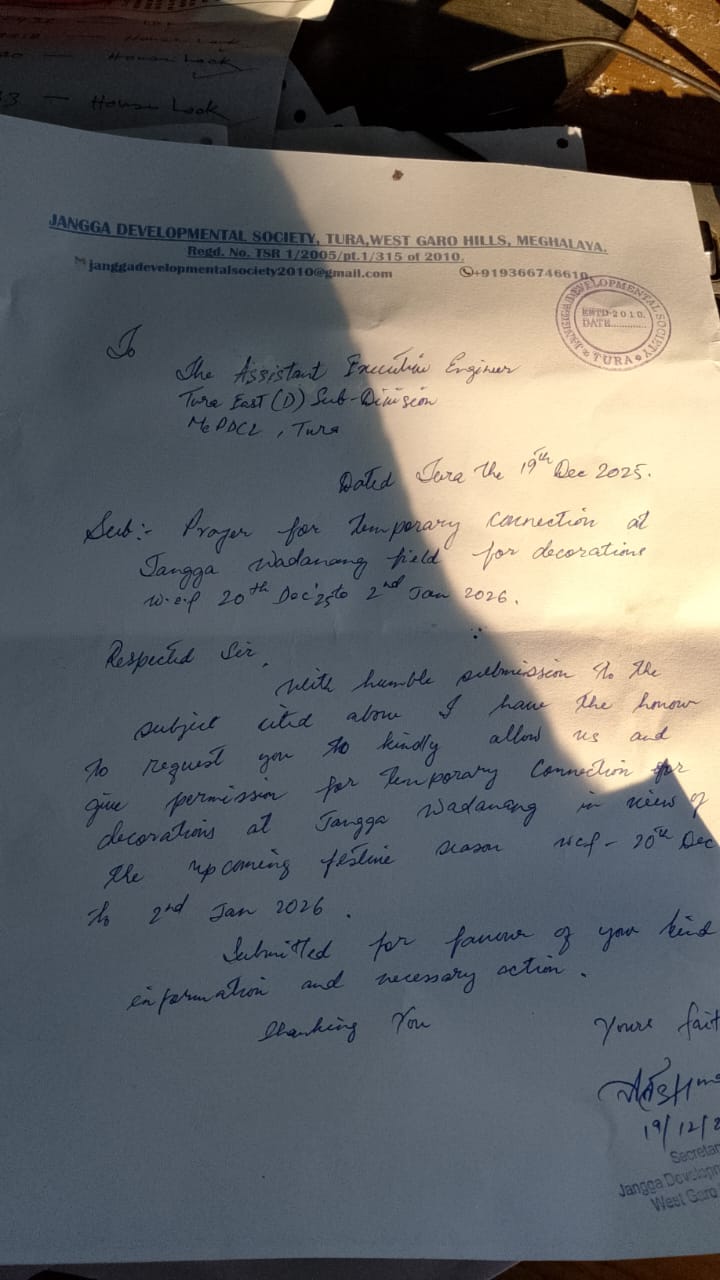 House Look
3 — House Look
JANGGA DEVELOPMENTAL SOCIETY, TURA,WEST GARO HILLS, MEGHALAYA.
Regd. No. TSR 1/2005/pt.1/315 of 2010.
janggadevelopmentalsociety2010@gmail.com +919366746610
JANGGA DEVELOPMENTAL SOCIETY
ESTD-2010.
DATE............
TURA
To
The Assistant Executive Engineer
Tura East (D) Sub-Division
MePDCL, Tura
Dated Tura the 19th Dec 2025.
Sub:- Prayer for temporary connection at
Jangga Wadanang field for decorations
w.e.f 20th Dec'25 to 2nd Jan 2026.
Respected Sir,
With humble submission to the
subject cited above I have the honour
to request you to kindly allow us and
give permission for temporary connection for
decorations at Jangga Wadanang in view of
the upcoming festive season wef - 20th Dec
to 2nd Jan 2026.
Submitted for favour of your kind
information and necessary action.
Thanking You
Yours fait
19/12/2
Secretar
Jangga Developm
West Garo